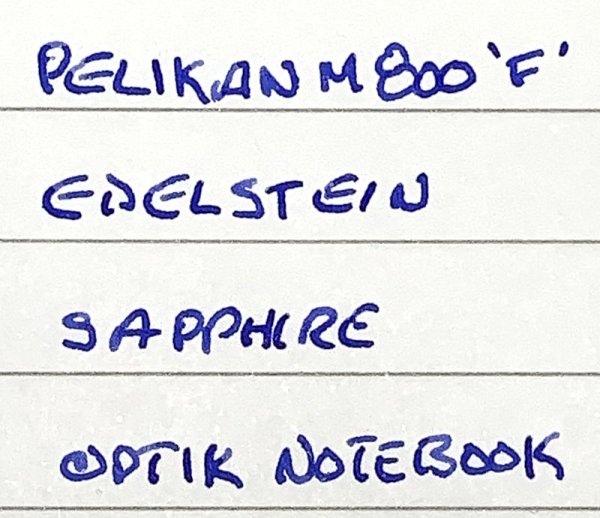 PELIKAN M800 'F'
EDELSTEIN
SAPPHIRE
OPTIK NOTEBOOK